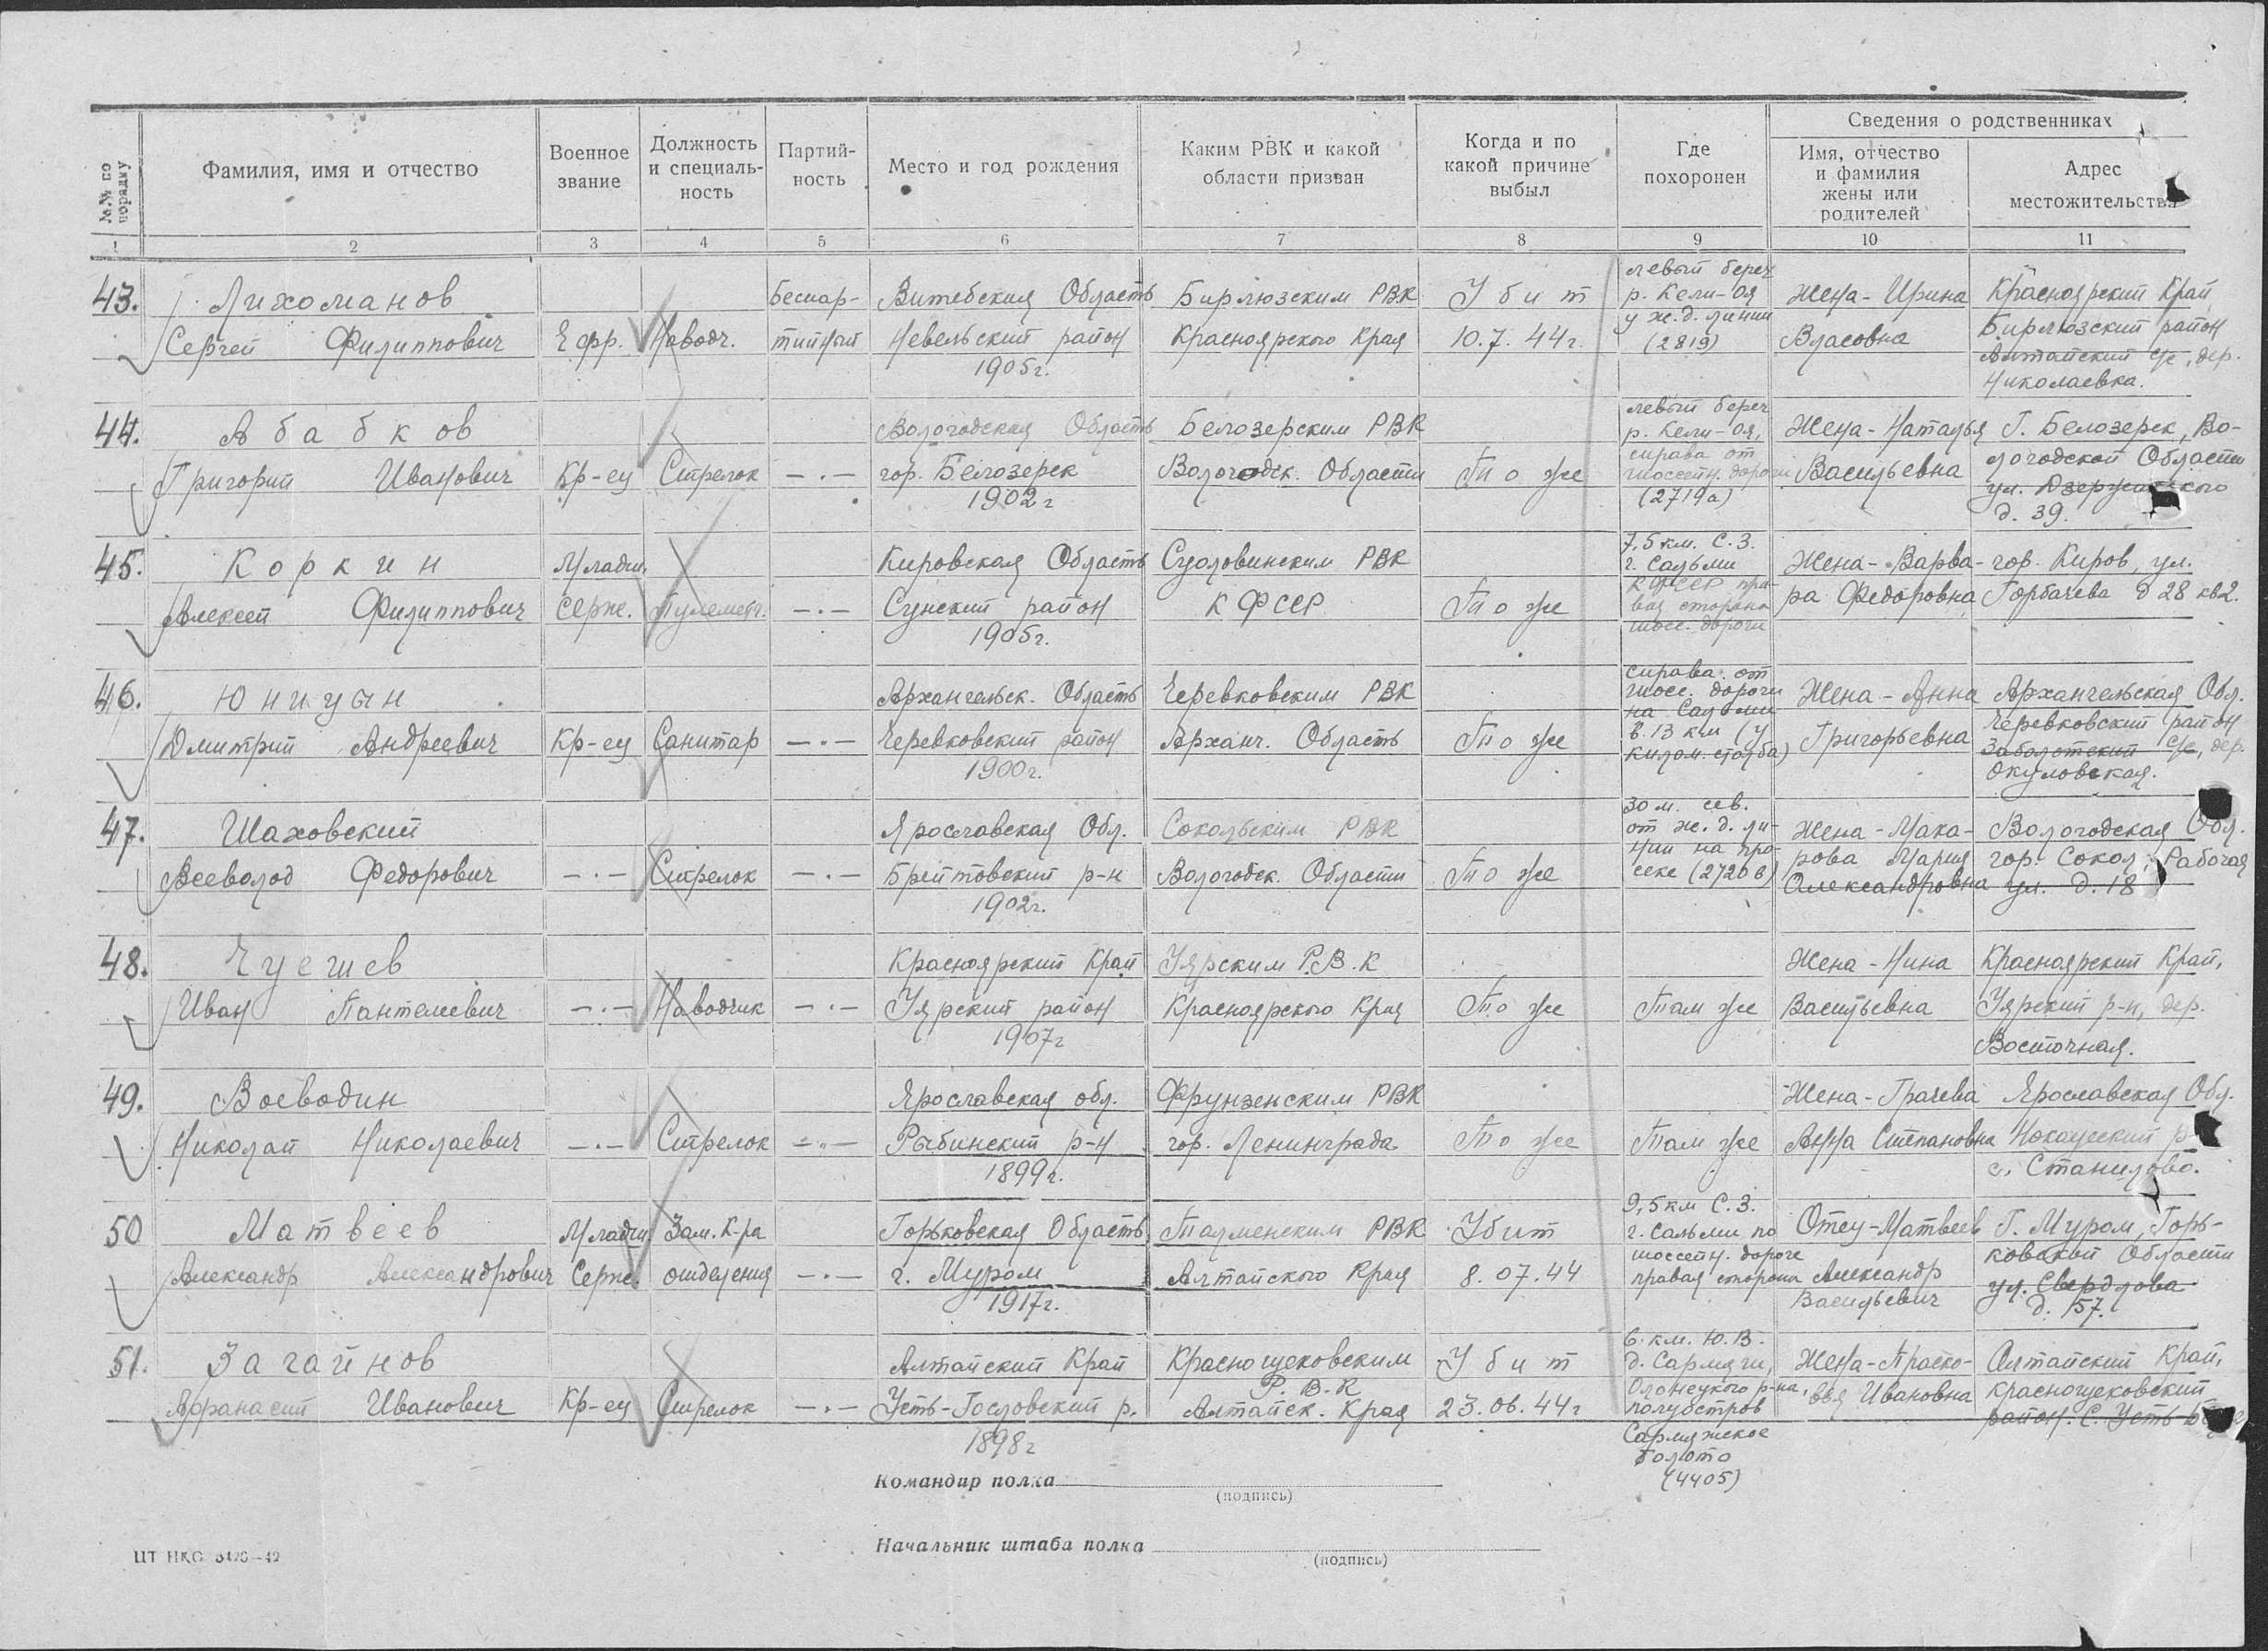 №№ по порядку
Фамилия, имя и отчество
Военное звание
Должность и специаль-ность
Партий-ность
Место и год рождения
Каким РВК и какой области призван
Когда и по какой причине выбыл
Где похоронен
Сведения о родственниках
Имя, отчество и фамилия жены или родителей
Адрес местожительства
1 2 3 4 5 6 7 8 9 10 11
43. Лихоманов
Сергей Филиппович
Ефр.
Наводч.
Беспар-
тийный
Витебская Область
Невельский район
1905г.
Бирлюзским РВК
Красноярского Края
Убит
10.7.44г.
левый берег
р. Кели-оя
у ж.д. линии
(2819)
Жена - Ирина
Власовна
Красноярский Край
Бирлюзский район
Алтайский с/с, дер.
Николаевка.
44. Абабков
Григорий Иванович
Кр-ец
Стрелок
—·—
Вологодская Область
гор. Белозерск
1902г
Белозерским РВК
Вологодск. Области
То же
левый берег
р. Кели-оя,
справа от
шоссейн. дороги
(2719а)
Жена - Наталья
Васильевна
Г. Белозерск, Во-
логодской Области
ул. Дзержинского
д. 39.
45. Коркин
Алексей Филиппович
Младш.
Серж.
Пулеметч.
—·—
Кировская Область
Сунский район
1905г.
Суоловинским РВК
КФССР
То же
7,5 км. С.З.
г. Сальми
КФССР пра-
вая сторона
шосс. дороги
Жена - Варва-
ра Федоровна
гор. Киров, ул.
Горбачева д 28 кв2.
46. Юницын
Дмитрий Андреевич
Кр-ец
Санитар
—·—
Архангельск. Область
Черевковский район
1900г.
Черевковским РВК
Арханг. Область
То же
справа от
шосс. дороги
на Салми
в 13 км (у
килом. столба)
Жена - Анна
Григорьевна
Архангельская Обл.
Черевковский район
Заболотский с/с, дер.
Окуловская.
47. Шаховский
Всеволод Федорович
—·—
Стрелок
—·—
Ярославская Обл.
Брейтовский р-н
1902г.
Сокольским РВК
Вологодск. Области
То же
30 м. сев.
от ж.д. ли-
нии на про-
секе (2720в)
Жена - Мака-
рова Мария
Александровна
Вологодская Обл.
гор. Сокол, Рабочая
ул. д. 18
48. Чуешев
Иван Пантелеевич
—·—
Наводчик
—·—
Красноярский Край
Уярский район
1907г
Уярским Р.В.К
Красноярского Края
То же
Там же
Жена - Нина
Васильевна
Красноярский Край,
Уярский р-н, дер.
Восточная.
49. Воеводин
Николай Николаевич
—·—
Стрелок
—·—
Ярославская обл.
Рыбинский р-н
1899г.
Фрунзенским РВК
гор. Ленинграда
То же
Там же
Жена - Грачева
Анна Степановна
Ярославская Обл.
с. Станилово.
50 Матвеев
Александр Александрович
Младш
Серж.
Зам. К-ра
отделения
—·—
Горьковская Область
г. Муром
1917г.
Талменским РВК
Алтайского Края
Убит
8.07.44
9,5 км С.З.
г. Сальми по
шоссейн. дороге
правая сторона
Отец - Матвеев
Александр
Васильевич
Г. Муром, Горь-
ковской Области
ул. Свердлова
д. 57.
51. Загайнов
Афанасий Иванович
Кр-ец
Стрелок
—·—
Алтайский Край
Усть-Гословский р.
1898г
Краснощековским
Р.В.К
Алтайск. Края
Убит
23.06.44г
6 км. Ю.В.
д. Сармяги,
Олонецкого р-на,
полуостров
Сармяжское
болото
(4405)
Жена - Праско-
вья Ивановна
Алтайский Край,
Краснощековский
район. С. Усть-
Командир полка
(подпись)
Начальник штаба полка
(подпись)
ЦТ НКО 3426—42